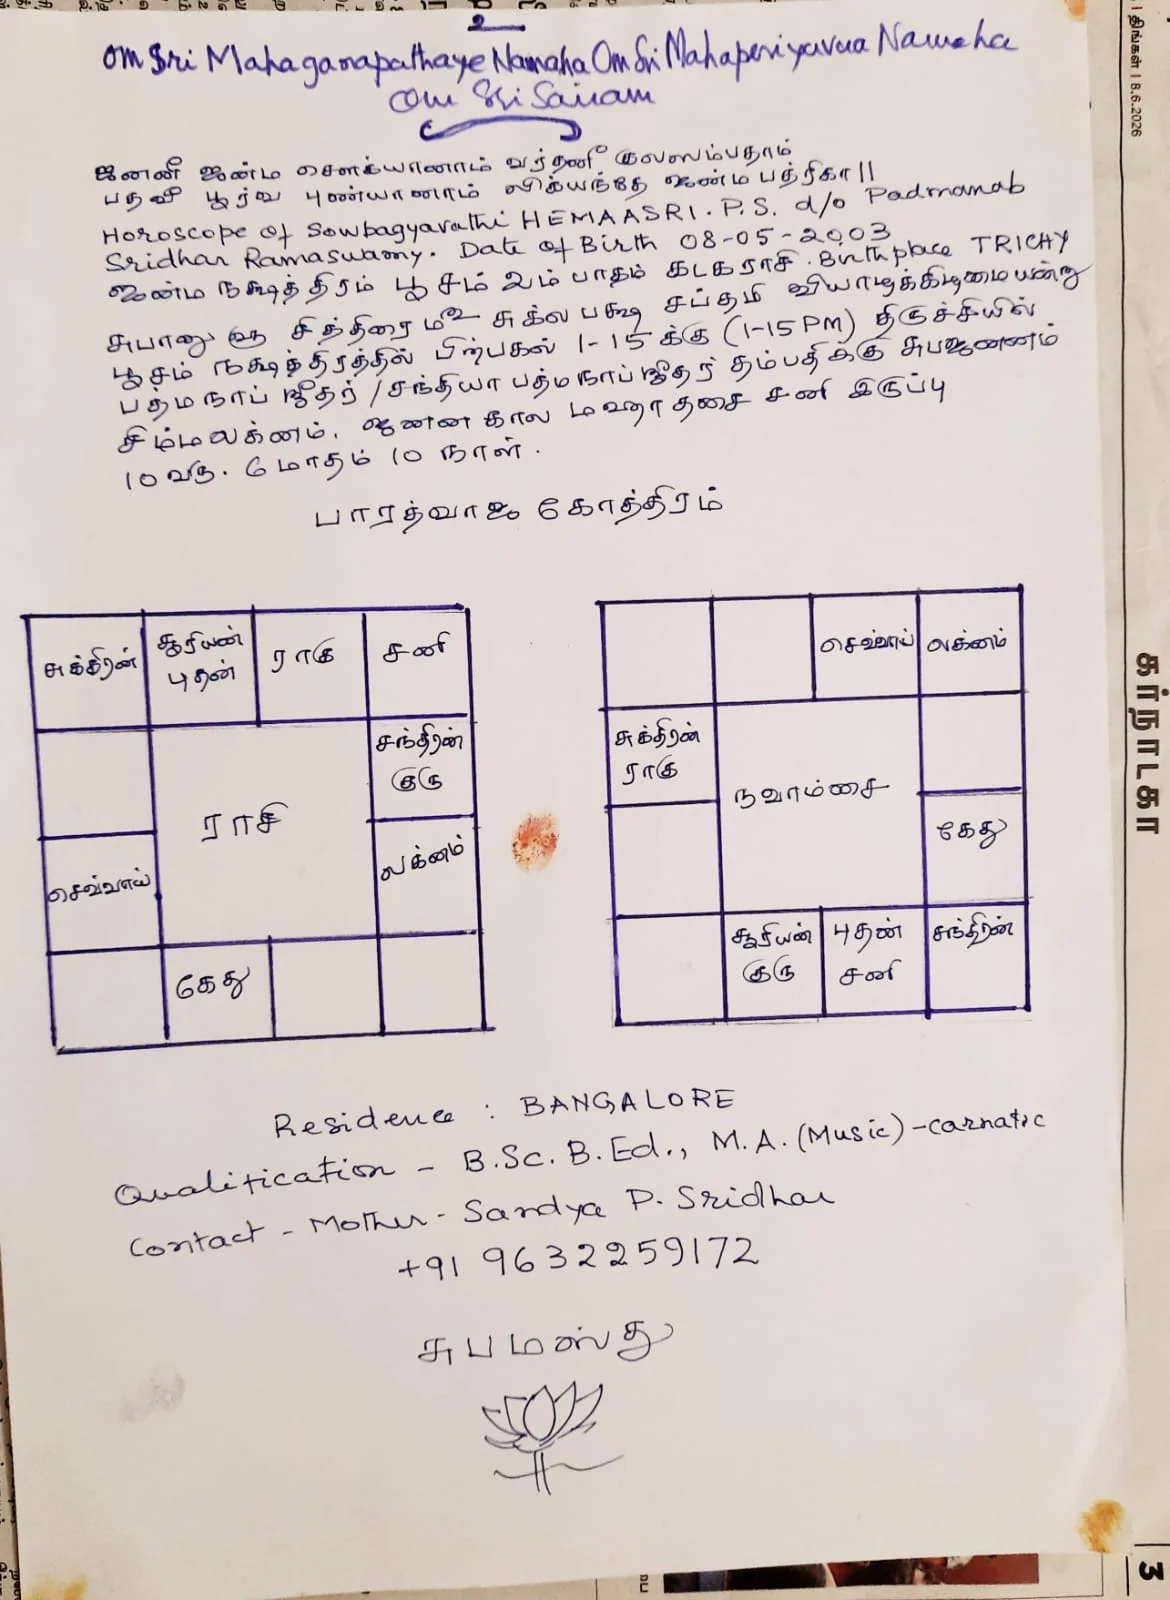 உ
Om Sri Mahaganapathaye Namaha Om Sri Mahaperiyavaa Namaha
Om Sri Sairam
ஜனனீ ஜன்ம சௌக்யானாம் வர்தனீ குலஸம்பதாம்
பதவீ பூர்வ புண்யானாம் லிக்யந்தே ஜன்ம பத்ரிகா ||
Horoscope of Sowbagyavathi HEMAASRI. P.S. d/o Padmanab
Sridhar Ramaswamy. Date of Birth 08-05-2003
ஜன்ம நக்ஷத்திரம் பூசம் 2ம் பாதம் கடகராசி. Birth place TRICHY
சுபானு வரு சித்திரை மீ உ சுக்ல பக்ஷ சப்தமி வியாழக்கிழமையன்று
பூசம் நக்ஷத்திரத்தில் பின்பகல் 1-15 க்கு (1-15 PM) திருச்சியில்
பத்மநாப் ஸ்ரீதர் / சந்தியா பத்மநாப் ஸ்ரீதர் தம்பதிக்கு சுபஜனனம்
சிம்மலக்னம். ஜனன கால மஹா தசை சனி இருப்பு
10 வரு. 6 மாதம் 10 நாள்.
பாரத்வாஜ கோத்திரம்
சுக்கிரன்
சூரியன்
புதன்
ராகு
சனி
சந்திரன்
குரு
ராசி
லக்னம்
செவ்வாய்
கேது
செவ்வாய்
லக்னம்
சுக்கிரன்
ராகு
நவாம்சை
கேது
சூரியன்
குரு
புதன்
சனி
சந்திரன்
Residence : BANGALORE
Qualification - B.Sc. B.Ed., M.A. (Music) - carnatic
Contact - Mother - Sandya P. Sridhar
+91 9632259172
சுபமஸ்து
திங்கள் | 8.6.2026
கர்நாடகா
3